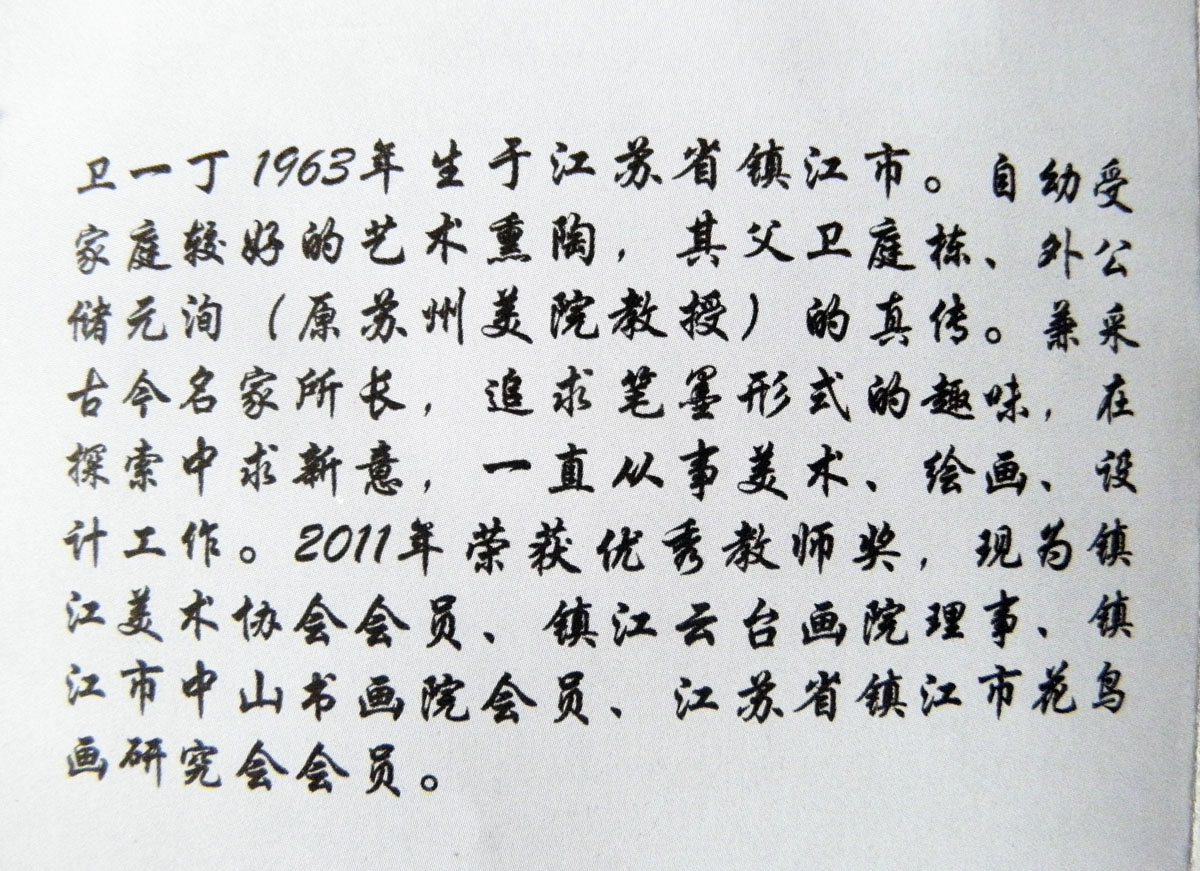 卫一丁 1963年 生于江苏省镇江市。自幼受
家庭较好的艺术熏陶，其父卫庭栋、外公
储元洵（原苏州美院教授）的真传。兼采
古今名家所长，追求笔墨形式的趣味，在
探索中求新意，一直从事美术、绘画、设
计工作。2011年荣获优秀教师奖，现为镇
江美术协会会员、镇江云台画院理事、镇
江市中山书画院会员、江苏省镇江市花鸟
画研究会会员。